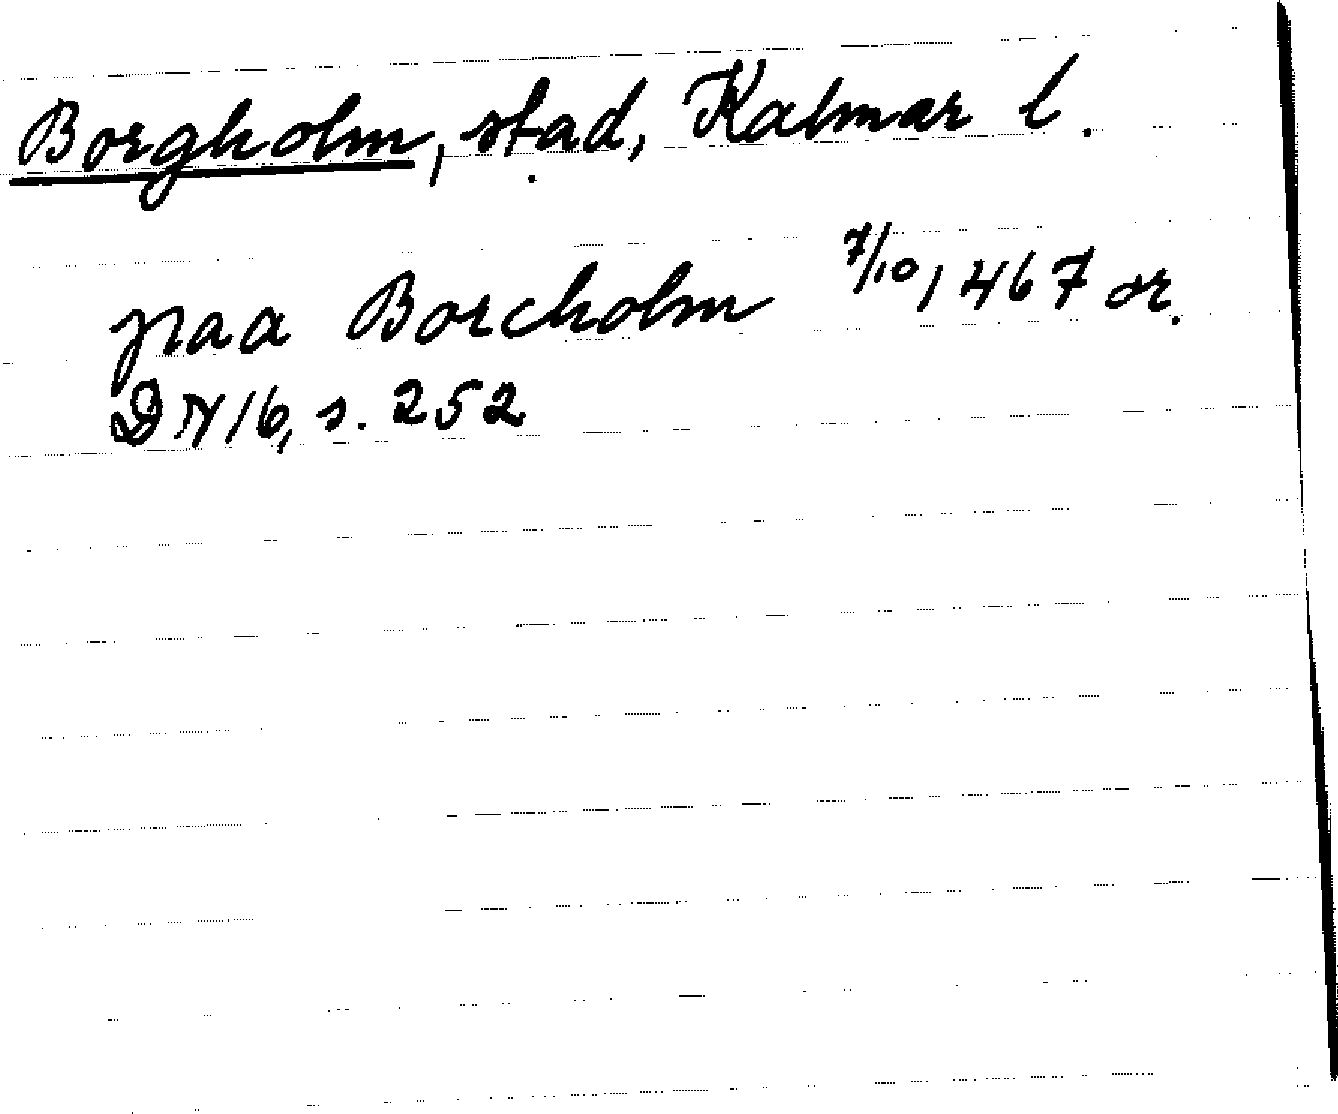 Borgholm, stad, Kalmar l.
paa Borcholm 7/10 1467 or.
DN 16, s. 252